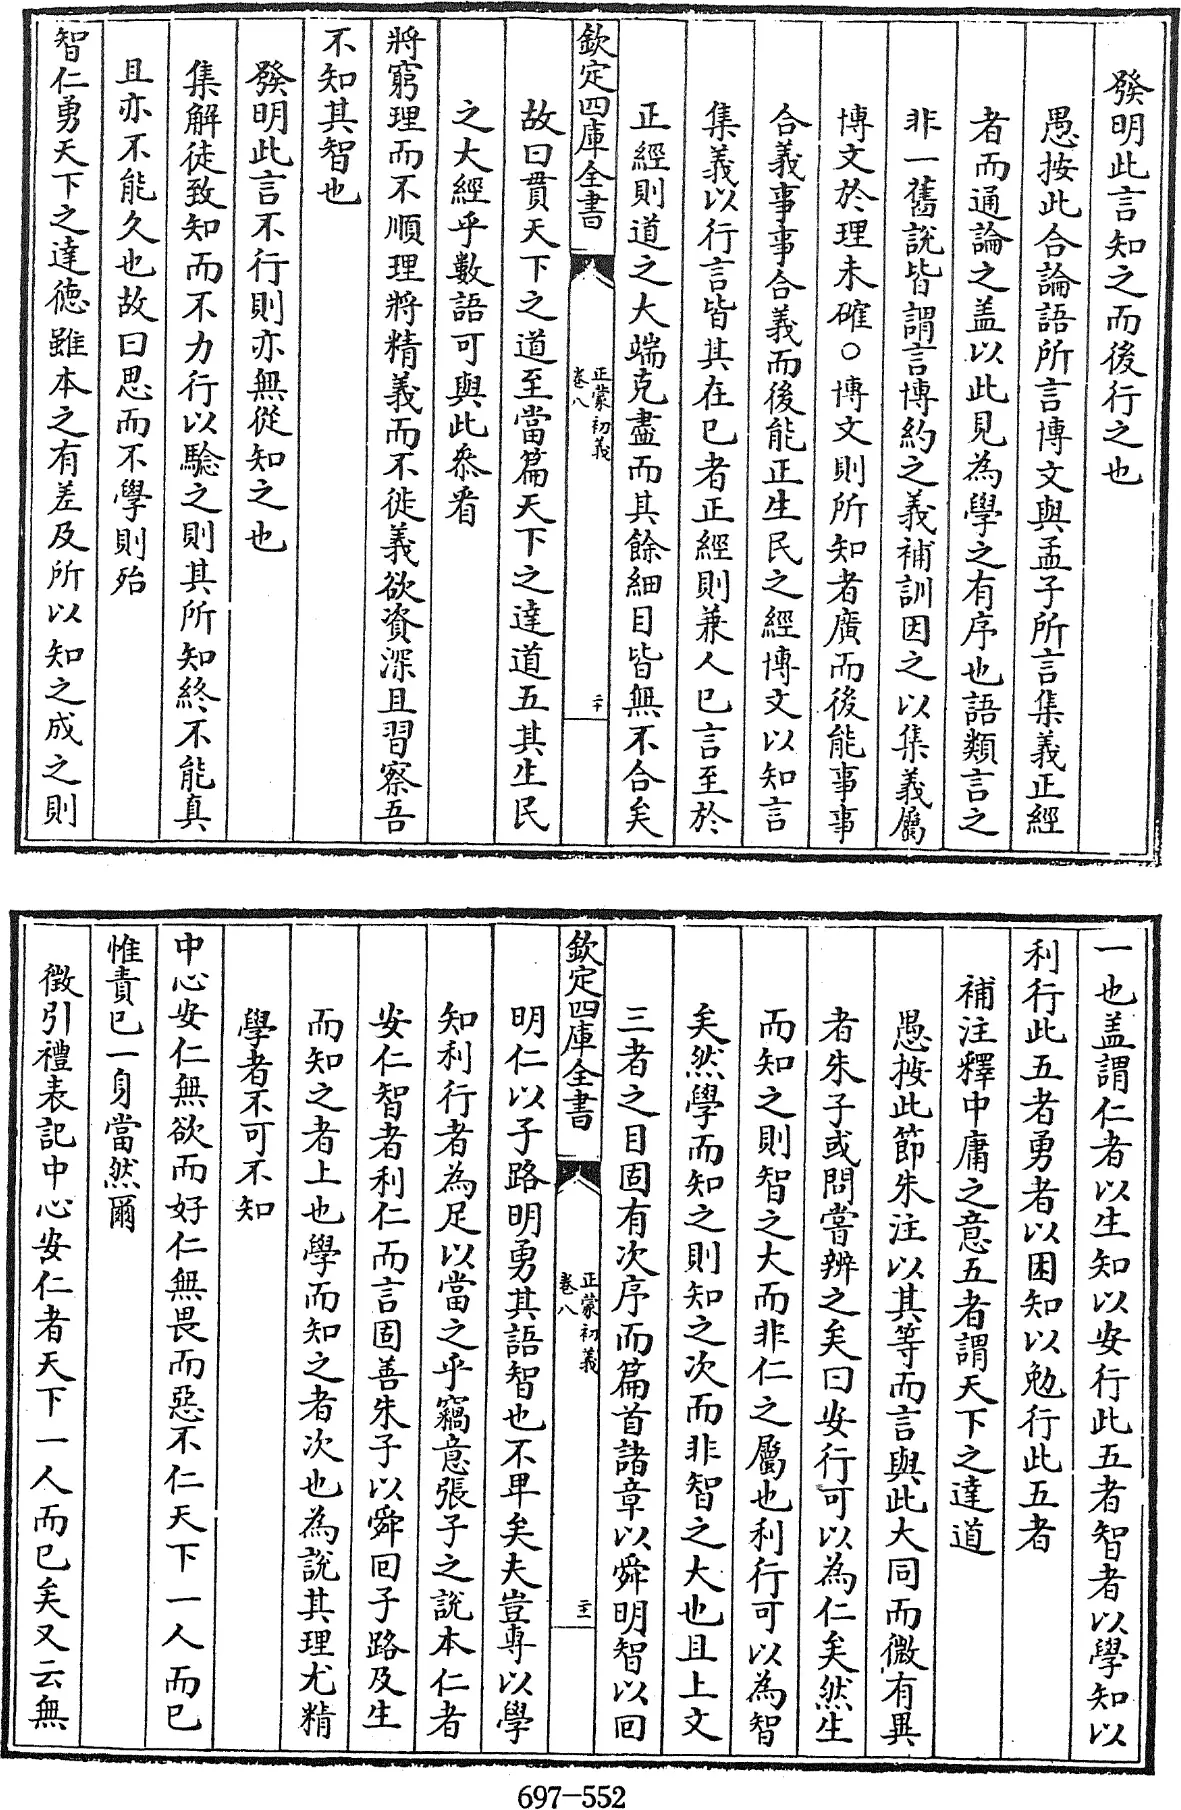 發明此言知之而後行之也
愚按此合論語所言博文與孟子所言集義正經
者而通論之盖以此見為學之有序也語類言之
非一舊說皆謂言博約之義補訓因之以集義屬
博文於理未確○博文則所知者廣而後能事事
合義事事合義而後能正生民之經博文以知言
集義以行言皆其在已者正經則兼人已言至於
正經則道之大端克盡而其餘細目皆無不合矣
欽定四庫全書
正蒙初義
卷八
二十
故曰貫天下之道至當篇天下之達道五其生民
之大經乎數語可與此叅看
將窮理而不順理將精義而不徙義欲資深且習察吾
不知其智也
發明此言不行則亦無從知之也
集解徒致知而不力行以騐之則其所知終不能真
且亦不能久也故曰思而不學則殆
智仁勇天下之達德雖本之有差及所以知之成之則
一也盖謂仁者以生知以安行此五者智者以學知以
利行此五者勇者以困知以勉行此五者
補注釋中庸之意五者謂天下之達道
愚按此節朱注以其等而言與此大同而微有異
者朱子或問嘗辨之矣曰安行可以為仁矣然生
而知之則智之大而非仁之屬也利行可以為智
矣然學而知之則知之次而非智之大也且上文
三者之目固有次序而篇首諸章以舜明智以回
欽定四庫全書
正蒙初義
卷八
二十一
明仁以子路明勇其語智也不卑矣夫豈專以學
知利行者為足以當之乎竊意張子之說本仁者
安仁智者利仁而言固善朱子以舜回子路及生
而知之者上也學而知之者次也為說其理尤精
學者不可不知
中心安仁無欲而好仁無畏而惡不仁天下一人而已
惟責已一身當然爾
徵引禮表記中心安仁者天下一人而已矣又云無
697-552